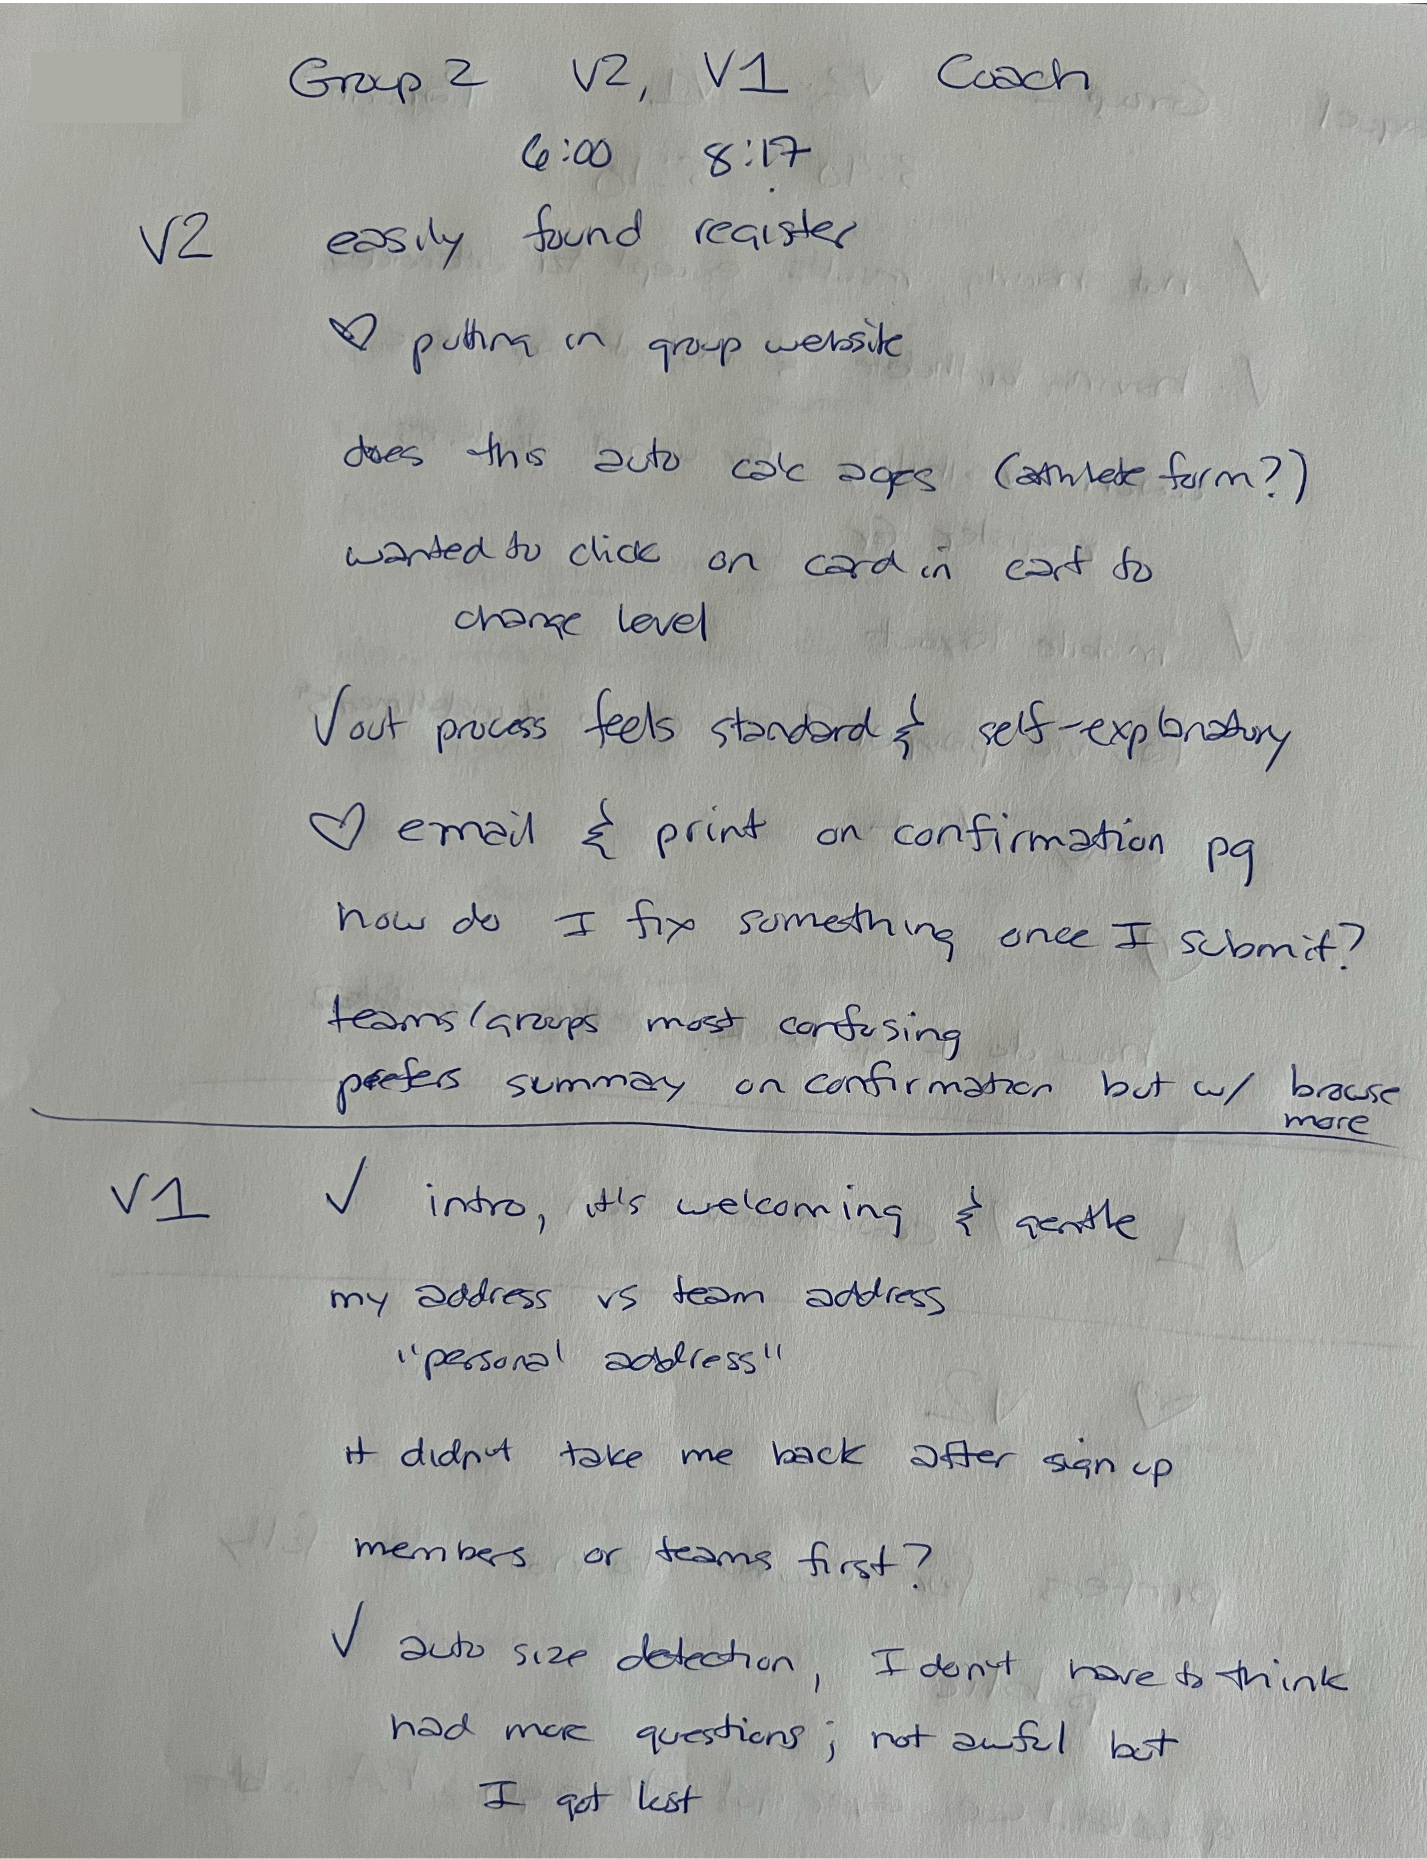 Group 2 V2, V1 Coach
6:00 8:17
V2 easily found register
♡ putting in group website
does this auto calc ages (athlete form?)
wanted to click on card in cart to
change level
√out process feels standard & self-explanatory
♡ email & print on confirmation pg
how do I fix something once I submit?
teams/groups most confusing
prefers summary on confirmation but w/ browse
more
V1 √ intro, it's welcoming & gentle
my address vs team address
"personal address"
it didn't take me back after sign up
members or teams first?
√ auto size detection, I don't have to think
had more questions; not awful but
I got lost